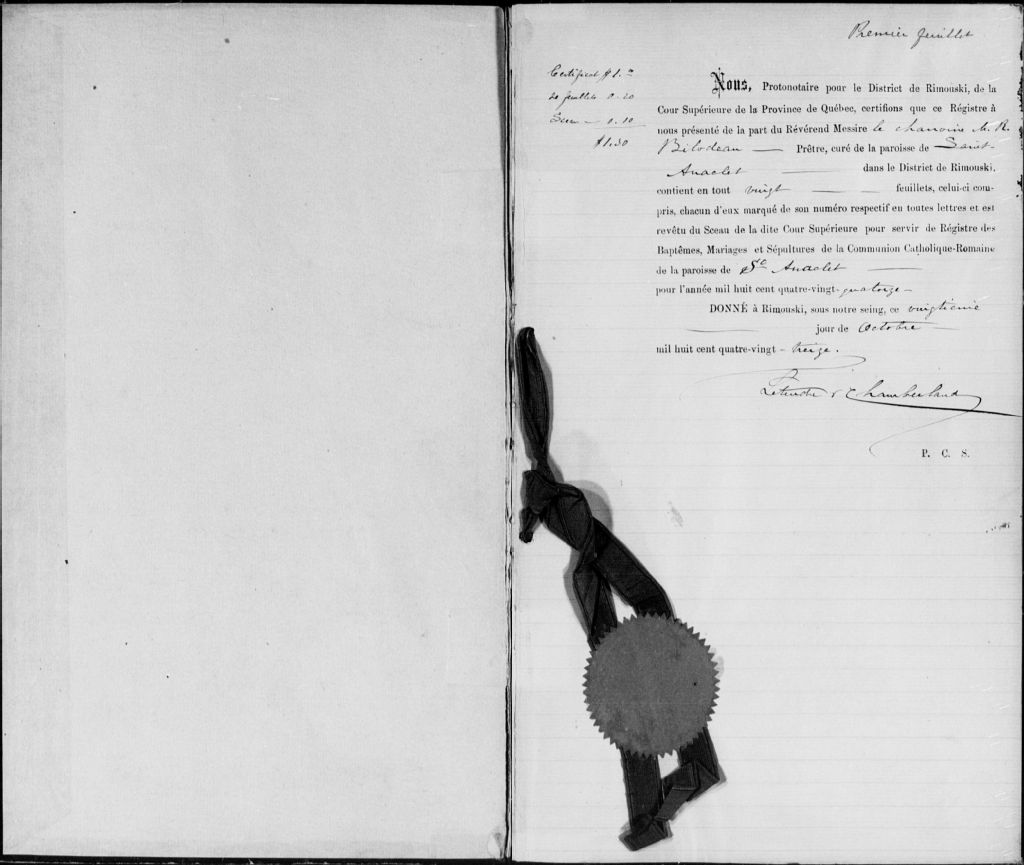 Premier feuillet
Certificat $1.00
20 feuillets 0.20
Sceau — 0.10
$1.30
Nous, Protonotaire pour le District de Rimouski, de la
Cour Supérieure de la Province de Québec, certifions que ce Régistre à
nous présenté de la part du Révérend Messire le chanoine M. R.
Bilodeau — Prêtre, curé de la paroisse de Saint-
Anaclet — dans le District de Rimouski,
contient en tout vingt — feuillets, celui-ci com-
pris, chacun d'eux marqué de son numéro respectif en toutes lettres et est
revêtu du Sceau de la dite Cour Supérieure pour servir de Régistre des
Baptêmes, Mariages et Sépultures de la Communion Catholique-Romaine
de la paroisse de St Anaclet —
pour l'année mil huit cent quatre-vingt-quatorze —
DONNÉ à Rimouski, sous notre seing, ce vingtième
— jour de Octobre —
mil huit cent quatre-vingt - treize.
Letendre & Chamberland
P. C. S.